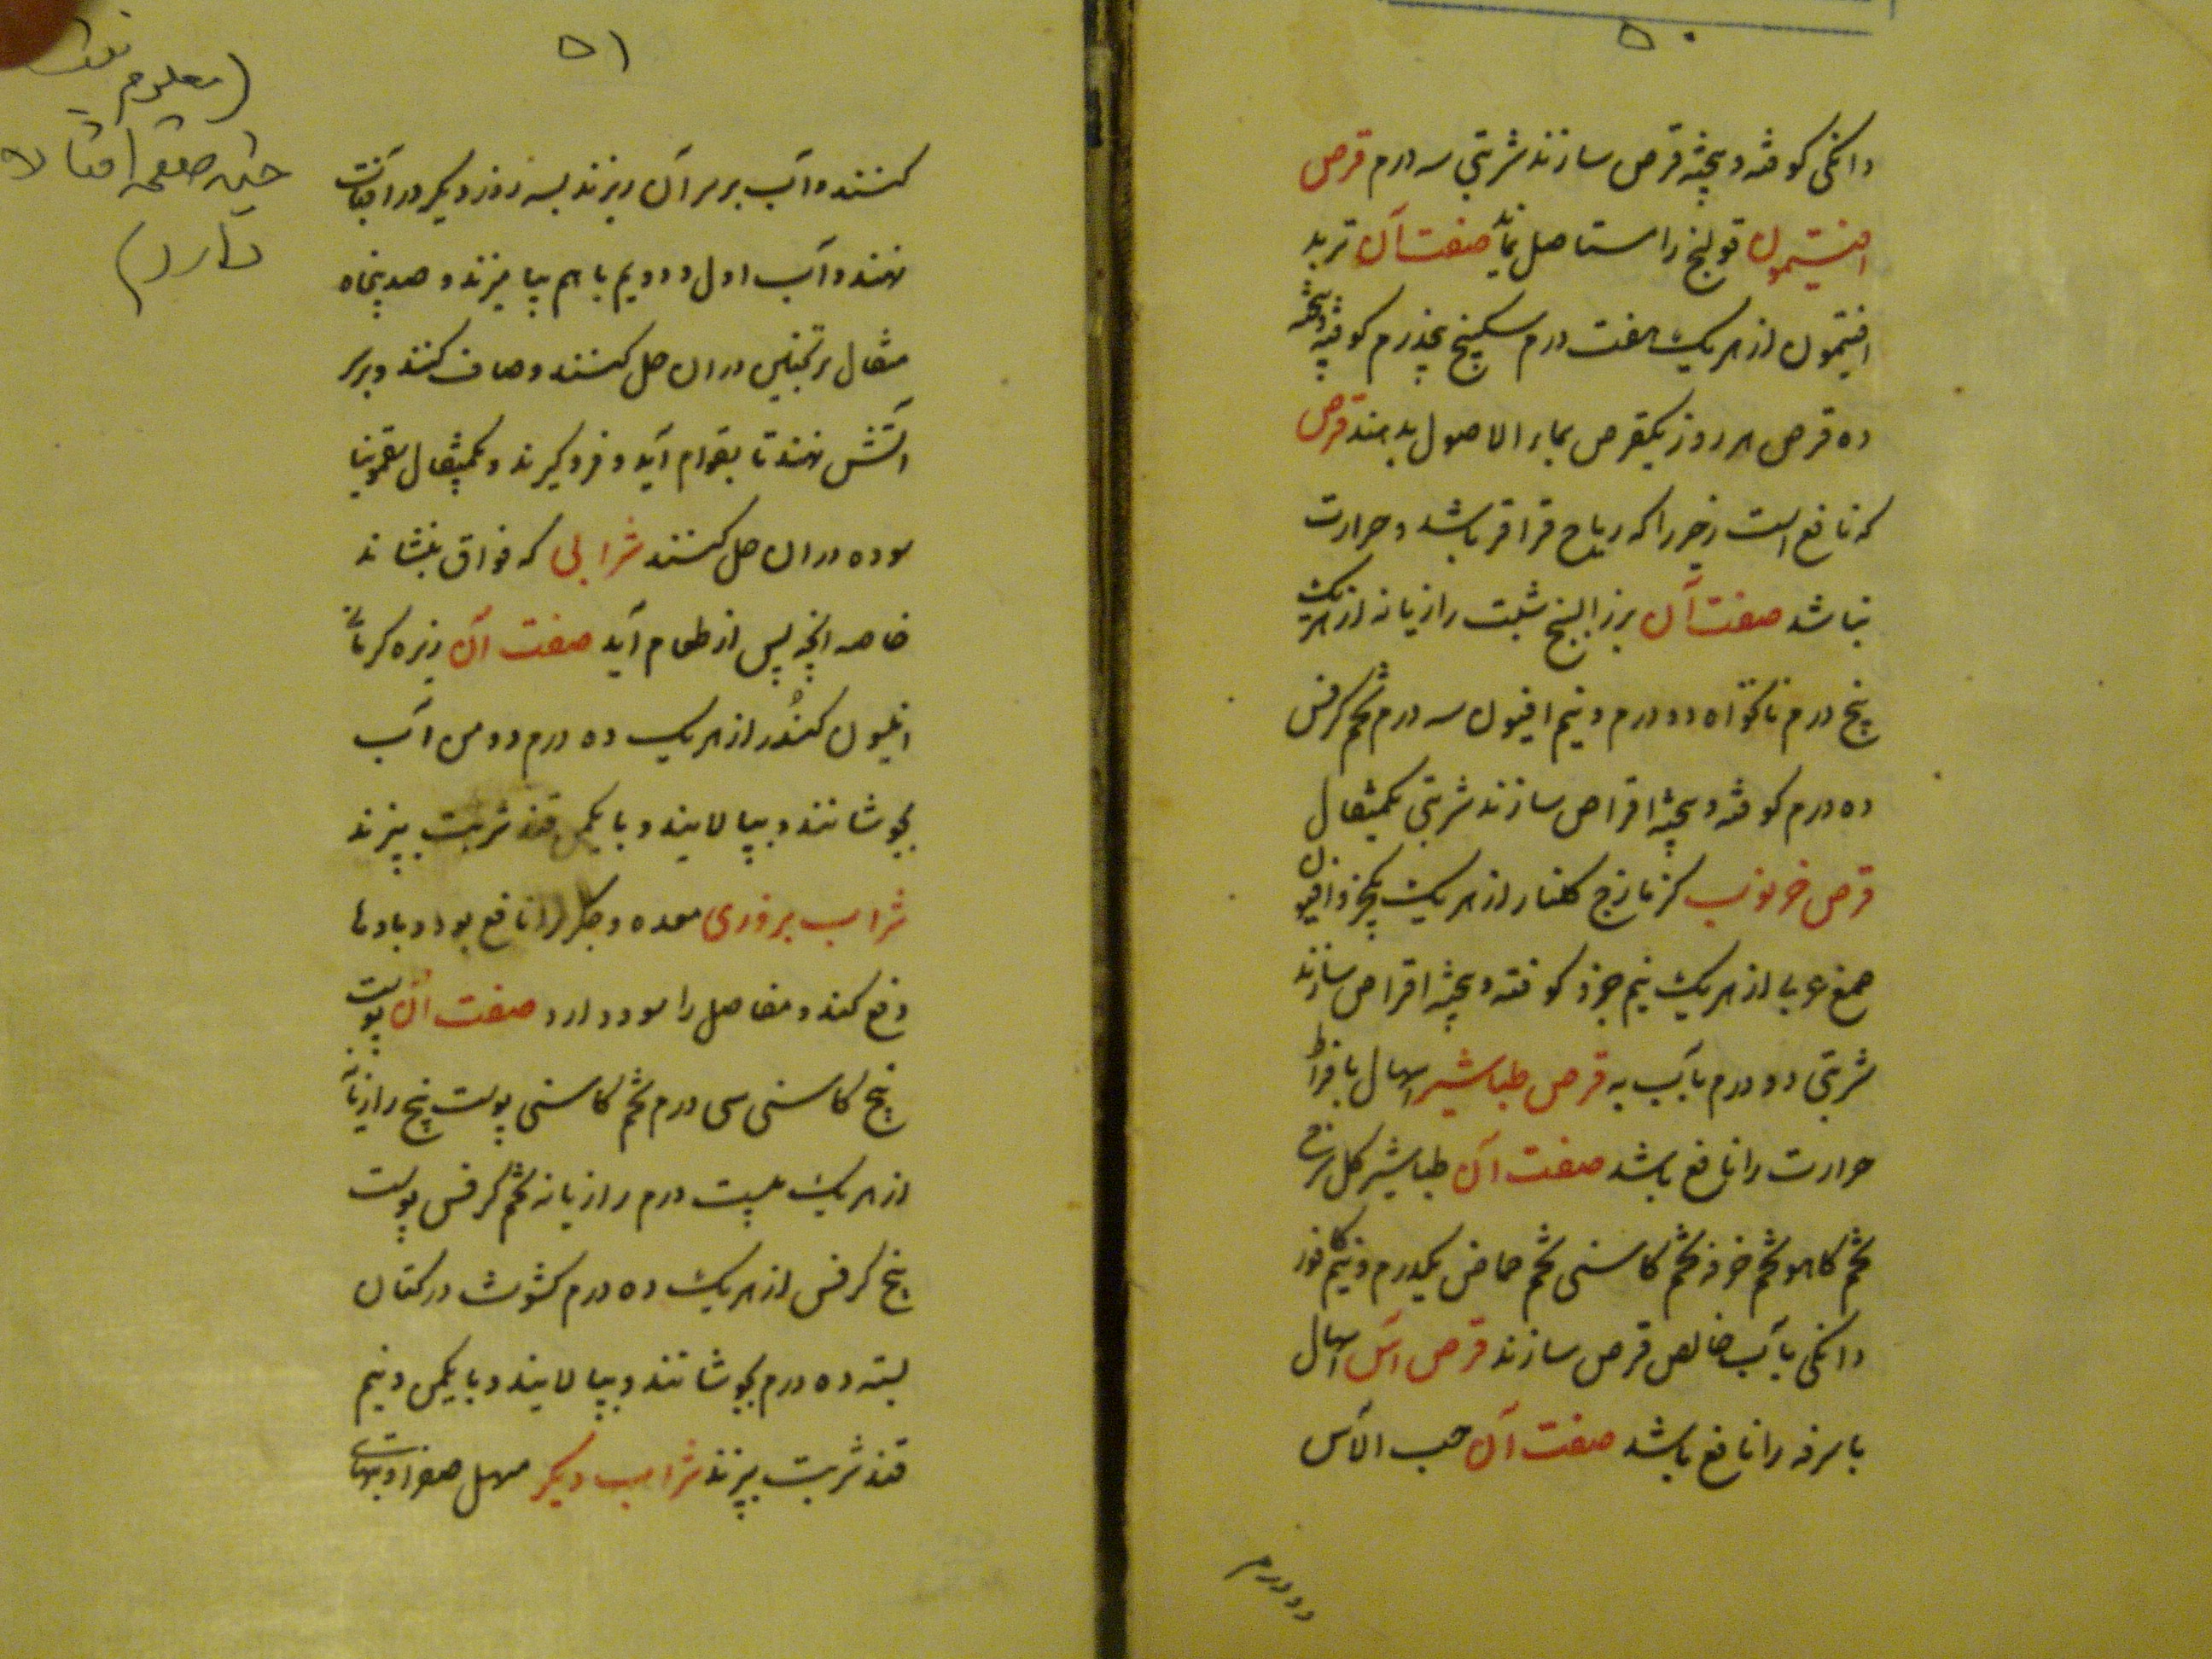 ۵۰
دانکی کوفته و بیخته قرص سازند شربتی سه درم قرص
افتیمون قولنج را مستاصل نماید صفت آن تربد
افتیمون از هر یک هفت درم سکبینج پنجدرم کوفته و بیخته
ده قرص هر روز یکقرص بماء الاصول بدهند قرص
که نافع است زحیر را که ریاح قراقر باشد و حرارت
نباشد صفت آن بزر البنج شبت رازیانه از هر یک
پنج درم نانخواه دو درم و نیم افیون سه درم تخم کرفس
ده درم کوفته و بیخته اقراص سازند شربتی یکمثقال
قرص خرنوب کزمازج گلنار از هر یک یکجزو افیون
صمغ عربی از هر یک نیم جزو کوفته و بیخته اقراص سازند
شربتی دو درم بآب به قرص طباشیر اسهال بافراط
حرارت را نافع باشد صفت آن طباشیر گل سرخ
تخم کاهو تخم خرفه تخم کاسنی تخم حماض یکدرم و نیم کافور
دانکی بآب خالص قرص سازند قرص آس اسهال
با سرفه را نافع باشد صفت آن حب الآس
دو درم
۵۱
کنند و آب بر سر آن ریزند بسه روز دیگر در آفتاب
نهند و آب اول و دویم با هم بیامیزند و صد پنجاه
مثقال ترنجبین در ان حل کنند و صاف کنند و بر سر
آتش نهند تا بقوام آید و فرو گیرند و یکمثقال سقمونیا
سوده در ان حل کنند شرابی که فواق بنشاند
خاصه انچه پس از طعام آید صفت آن زیره کرمانی
انیسون کندر از هر یک ده درم دو من آب
بجوشانند و بپالایند و با یکمن قند شربت بپزند
شراب بزوری معده و جگر را نافع بود و بادها
دفع کند و مفاصل را سود دارد صفت آن پوست
بیخ کاسنی سی درم تخم کاسنی پوست بیخ رازیانه
از هر یک بیست درم رازیانه تخم کرفس پوست
بیخ کرفس از هر یک ده درم کشوث در کتان
بسته ده درم بجوشانند و بپالایند و با یکمن و نیم
قند شربت بپزند شراب دیگر مسهل صفرا و
(معلوم
صفحه افتاده
دارد)